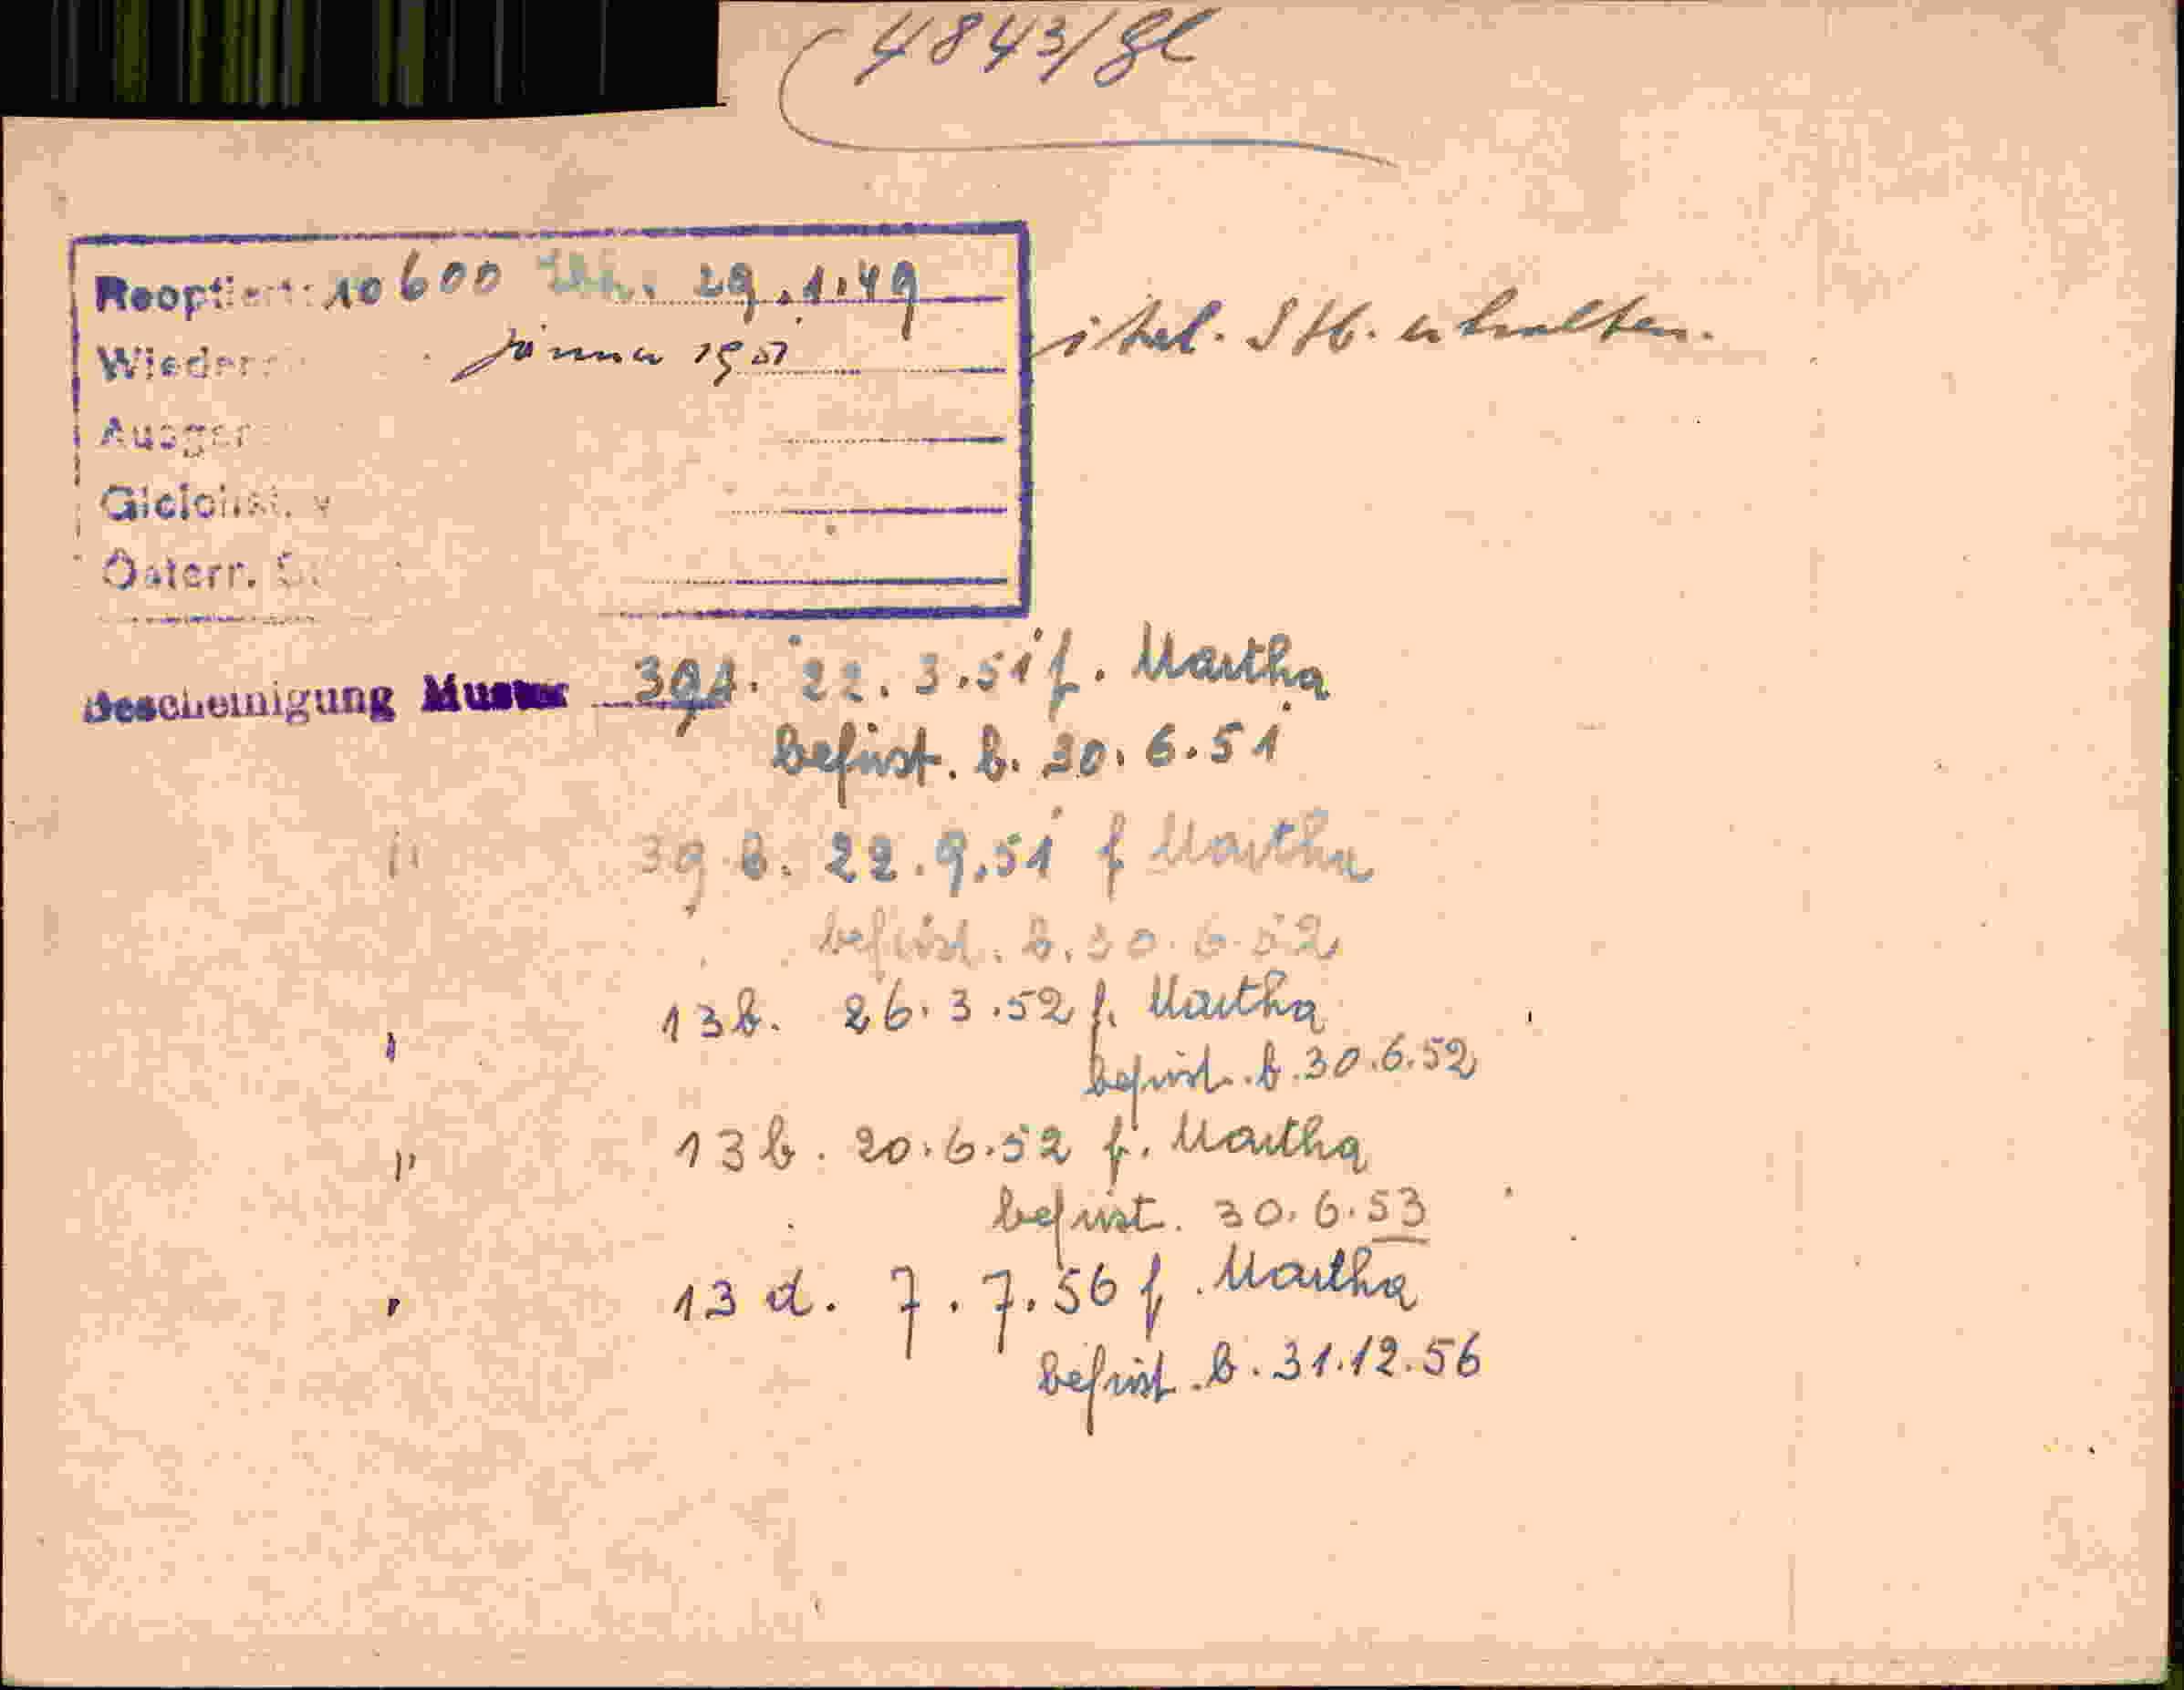 4843/gl
Reoptiert: 10600 29.1.49
Jänner 1951 ital. Stb. erhalten.
Gleichst. v
Österr.
Bescheinigung Muster 39a. 22.3.51 f. Martha
befrist. b. 30.6.51
" 39 b. 22.9.51 f Martha
befrist. b. 30.6.52
" 13b. 26.3.52 f. Martha
befrist. b. 30.6.52
" 13b. 20.6.52 f. Martha
befrist. 30.6.53
" 13 d. 7.7.56 f. Martha
befrist. b. 31.12.56